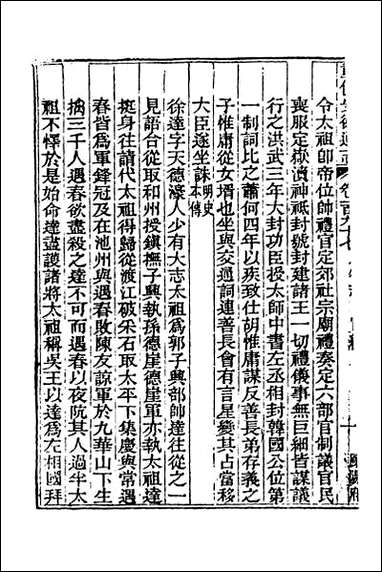 令太祖卽帝位帥禮官定郊社宗廟禮奏定六部官制議官民
喪服定嶽瀆神祇封號封建諸王一切禮儀事無巨細皆謀議
行之洪武三年大封功臣授太師中書左丞相封韓國公位第
一制詞比之蕭何四年以疾致仕胡惟庸謀反善長弟存義之
子惟庸從女壻也坐與交通詞連善長會有言星變其占當移
大臣遂坐誅明史本傳
徐達字天德濠人少有大志太祖爲郭子興部帥達往從之一
見語合從取和州授鎮撫子興執孫德崖德崖軍亦執太祖達
挺身往請代太祖得歸從渡江破采石取太平下集慶與常遇
春皆爲軍鋒冠及在池州與遇春敗陳友諒軍於九華山下生
擒三千人遇春欲盡殺之達不可而遇春以夜阬其人過半太
祖不懌於是始命達盡護諸將太祖稱吳王以達爲左相國拜